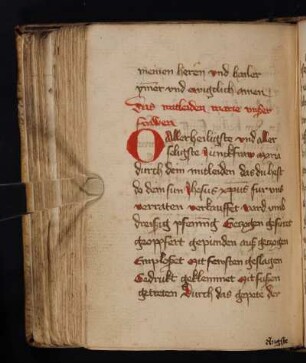 meinen heren vnd hailer
ymer vnd ewiglich amen
Das mitleiden marie vnser
frawen
O Allerheiligste vnd aller
seligiste Junckfraw maria
durch dein mitleiden das du hest
do dein sun Jhesus xpus fur vns
verraten verkauffet ward vmb
dreissig pfenning Getzogen gefurt
geopffert gepunden auf getzogen
Empfohet mit feusten geslagen
Gedrukt geklemmet mit fussen
getreten Durch das gepete der